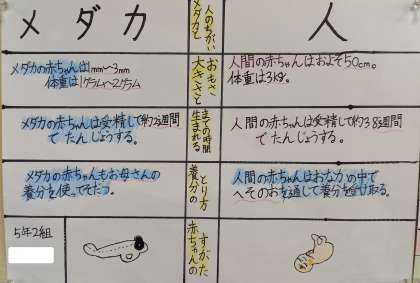 メダカ
メダカと
人のちがい
人
メダカの赤ちゃんは1mm〜3mm
体重は1グラム〜2グラム
大きさと
おもさ
人間の赤ちゃんはおよそ50cm。
体重は3kg。
メダカの赤ちゃんは受精して約2週間
でたんじょうする。
生まれる
までの時間
人間の赤ちゃんは受精して約38週間
でたんじょうする。
メダカの赤ちゃんもお母さんの
養分を使ってそだつ。
養分の
とり方
人間の赤ちゃんはおなかの中で
へそのおを通して養分を受け取る。
5年2組
赤ちゃんの
すがた